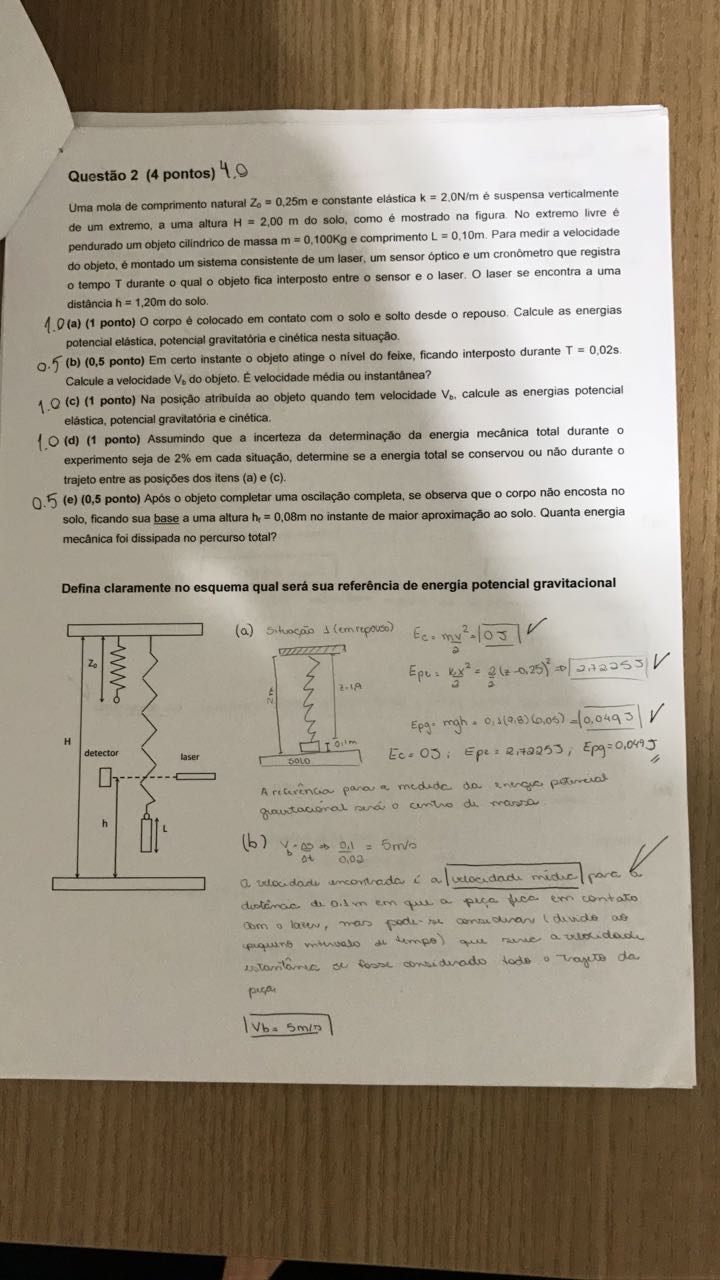 Questão 2 (4 pontos) 4.0
Uma mola de comprimento natural Z₀ = 0,25m e constante elástica k = 2,0N/m é suspensa verticalmente
de um extremo, a uma altura H = 2,00 m do solo, como é mostrado na figura. No extremo livre é
pendurado um objeto cilíndrico de massa m = 0,100Kg e comprimento L = 0,10m. Para medir a velocidade
do objeto, é montado um sistema consistente de um laser, um sensor óptico e um cronômetro que registra
o tempo T durante o qual o objeto fica interposto entre o sensor e o laser. O laser se encontra a uma
distância h = 1,20m do solo.
1.0 (a) (1 ponto) O corpo é colocado em contato com o solo e solto desde o repouso. Calcule as energias
potencial elástica, potencial gravitatória e cinética nesta situação.
0.5 (b) (0,5 ponto) Em certo instante o objeto atinge o nível do feixe, ficando interposto durante T = 0,02s.
Calcule a velocidade V_b do objeto. É velocidade média ou instantânea?
1.0 (c) (1 ponto) Na posição atribuída ao objeto quando tem velocidade V_b, calcule as energias potencial
elástica, potencial gravitatória e cinética.
1.0 (d) (1 ponto) Assumindo que a incerteza da determinação da energia mecânica total durante o
experimento seja de 2% em cada situação, determine se a energia total se conservou ou não durante o
trajeto entre as posições dos itens (a) e (c).
0.5 (e) (0,5 ponto) Após o objeto completar uma oscilação completa, se observa que o corpo não encosta no
solo, ficando sua base a uma altura h_f = 0,08m no instante de maior aproximação ao solo. Quanta energia
mecânica foi dissipada no percurso total?
Defina claramente no esquema qual será sua referência de energia potencial gravitacional
Z₀
H
detector
laser
h
L
(a) Situação 1 (em repouso)
Ec = mv²/2 = 0J
2m
0.1m
SOLO
Epe = kx²/2 = 2/2 (z-0,25)² ⇒ 2,7225J
Epg = mgh = 0,1(9,8)(0,05) = 0,049J
Ec = 0J ; Epe = 2,7225J ; Epg = 0,049J
A referência para a medida da energia potencial
gravitacional será o centro de massa.
(b) V_b = Δs/Δt ⇒ 0,1/0,02 = 5m/s
A velocidade encontrada é a velocidade média para a
distância de 0.1m em que a peça fica em contato
com o laser, mas pode-se considerar (devido ao
pequeno intervalo de tempo) que seria a velocidade
instantânea se fosse considerado todo o trajeto da
peça.
Vb = 5m/s